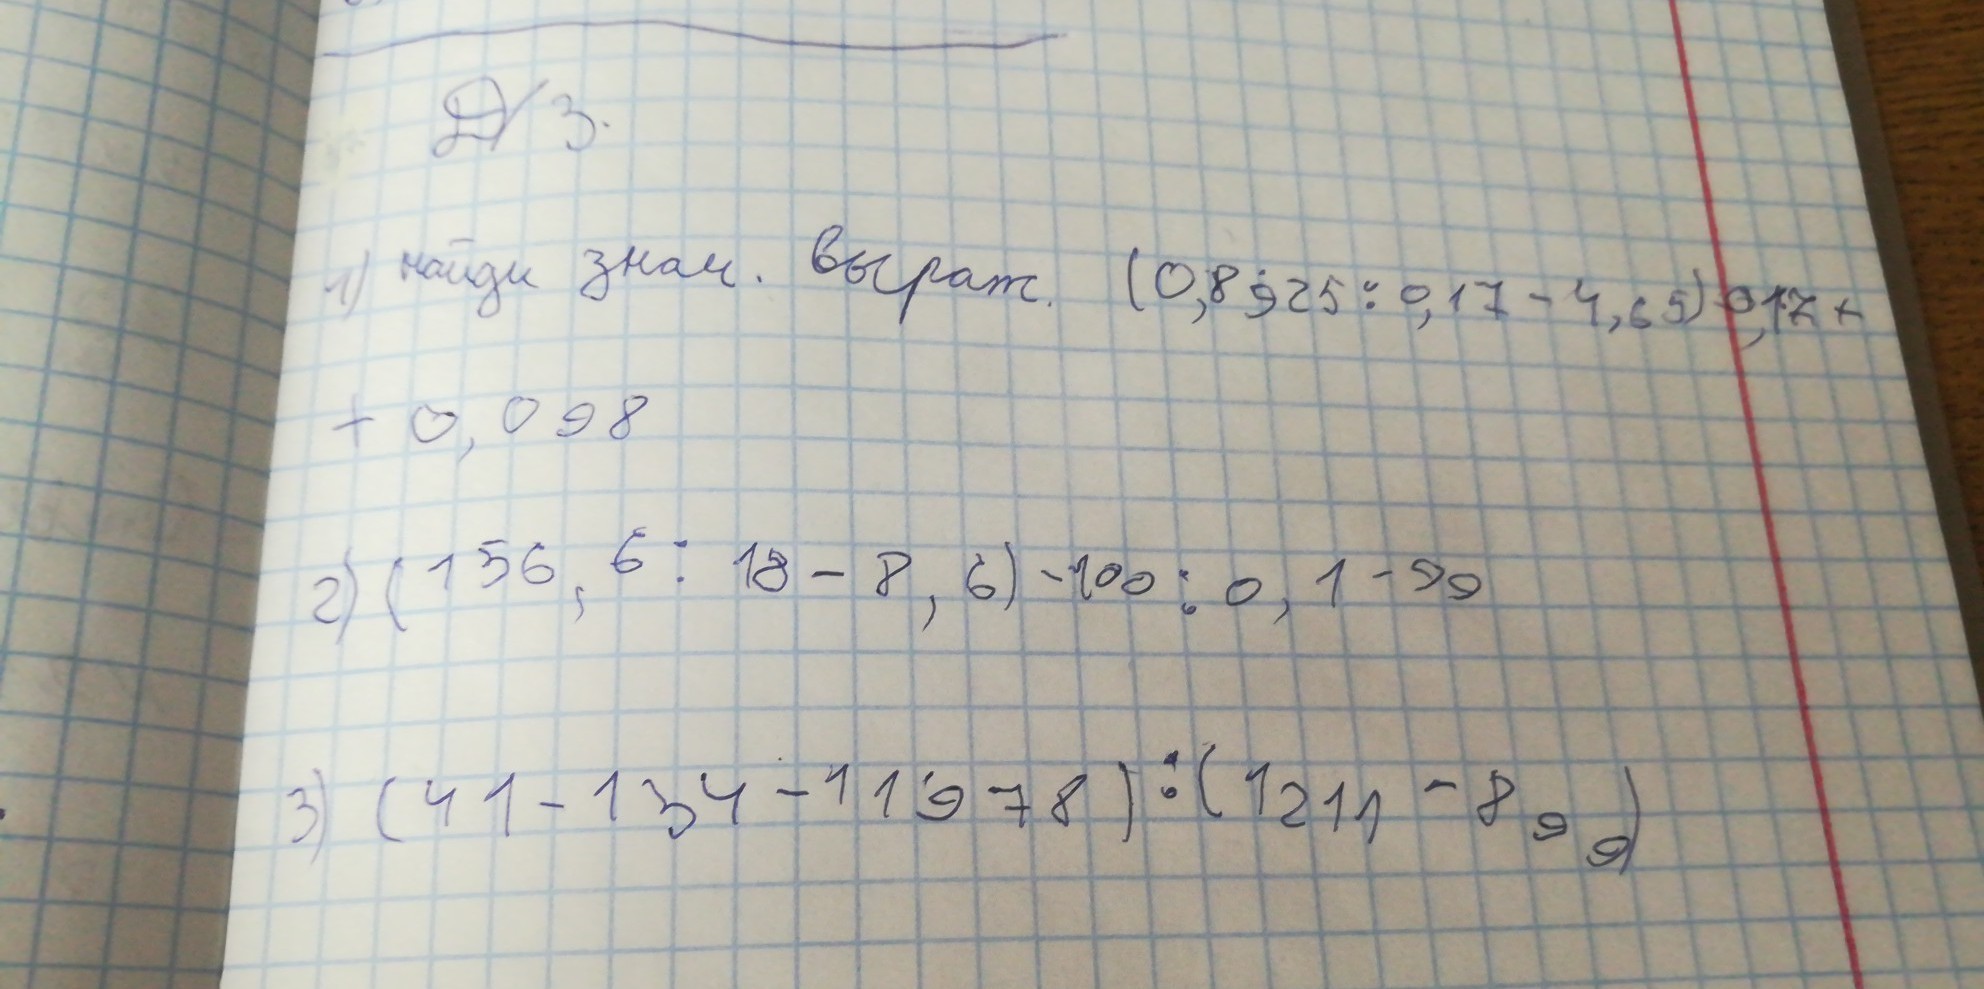 Д/З.
1) найди знач. выраж. (0,8925:0,17-4,65)·0,17+
+ 0,098
2) (156,6:18-8,6)-100:0,1-99
3) (41-134-11978):(1211-899)